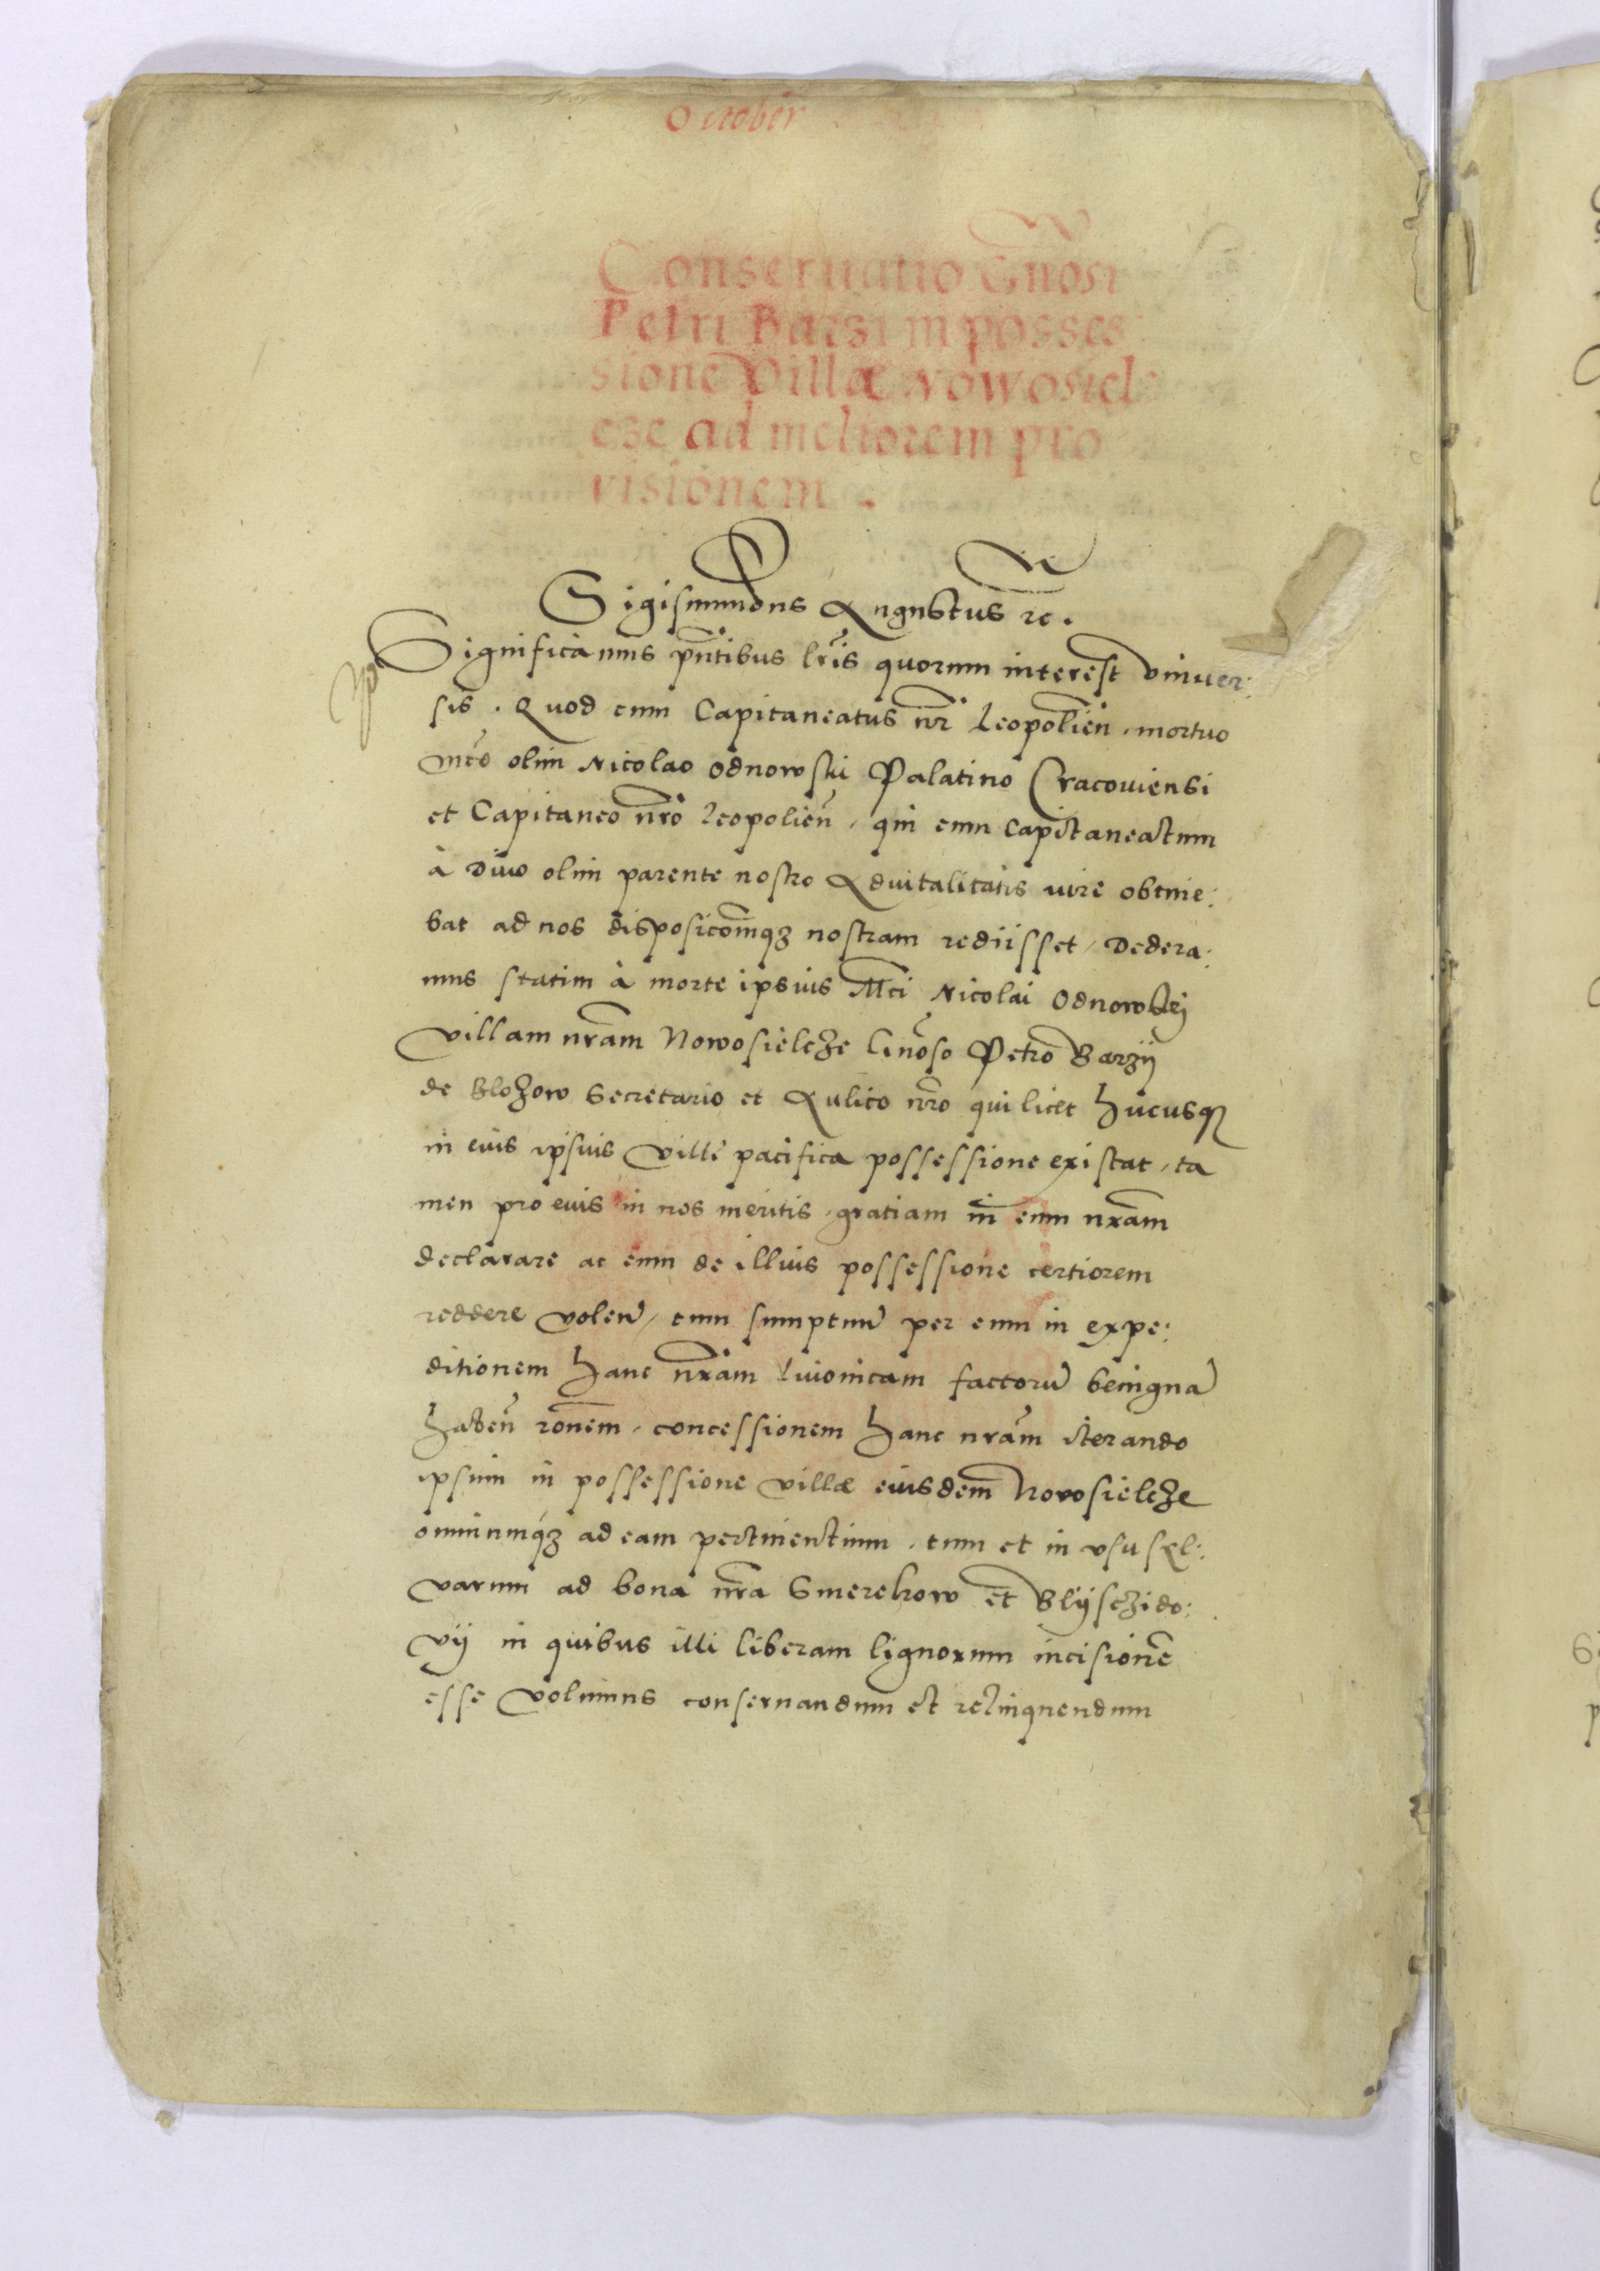 October
Conseruatio Gnosi
Petri Barzi in posses
sione Villæ Nowosiel
cze ad meliorem pro
visionem.
Sigismundus Augustus rc.
Significamus pntibus lris quorum interest vniuer:
sis. Quod cum Capitaneatus nr Leopolien, mortuo
mco olim Nicolao Odnowski Palatino Cracouiensi
et Capitaneo nro Leopolien, qui eum Capitaneatum
à Diuo olim parente nostro Aduitalitatis iure obtine:
bat ad nos disposicomqz nostram rediisset, Dedera:
mus statim à morte ipsius Mci Nicolai Odnowskij
villam nram Nowosielcze Gnoso Petro Barzÿ
de Blozow Secretario et Aulico nro qui licet hucusq
in eius ipsius ville pacifica possessione existat, ta
men pro eius in nos meritis, gratiam in eum nram
declarare ac eum de illius possessione certiorem
reddere volen, tum sumptuu per eum in expe:
ditionem hanc nram Liuonicam factoru benigna
haben ronem, concessionem hanc nram iterando
ipsum in possessione villæ eiusdem Novosielcze
omniumqz ad eam pertinentium, tum et in vsu syl:
varum ad bona nra Smerekow et Blÿsczido:
vÿ in quibus illi liberam lignorum incisione
esse volumus conseruandum et relinquendum